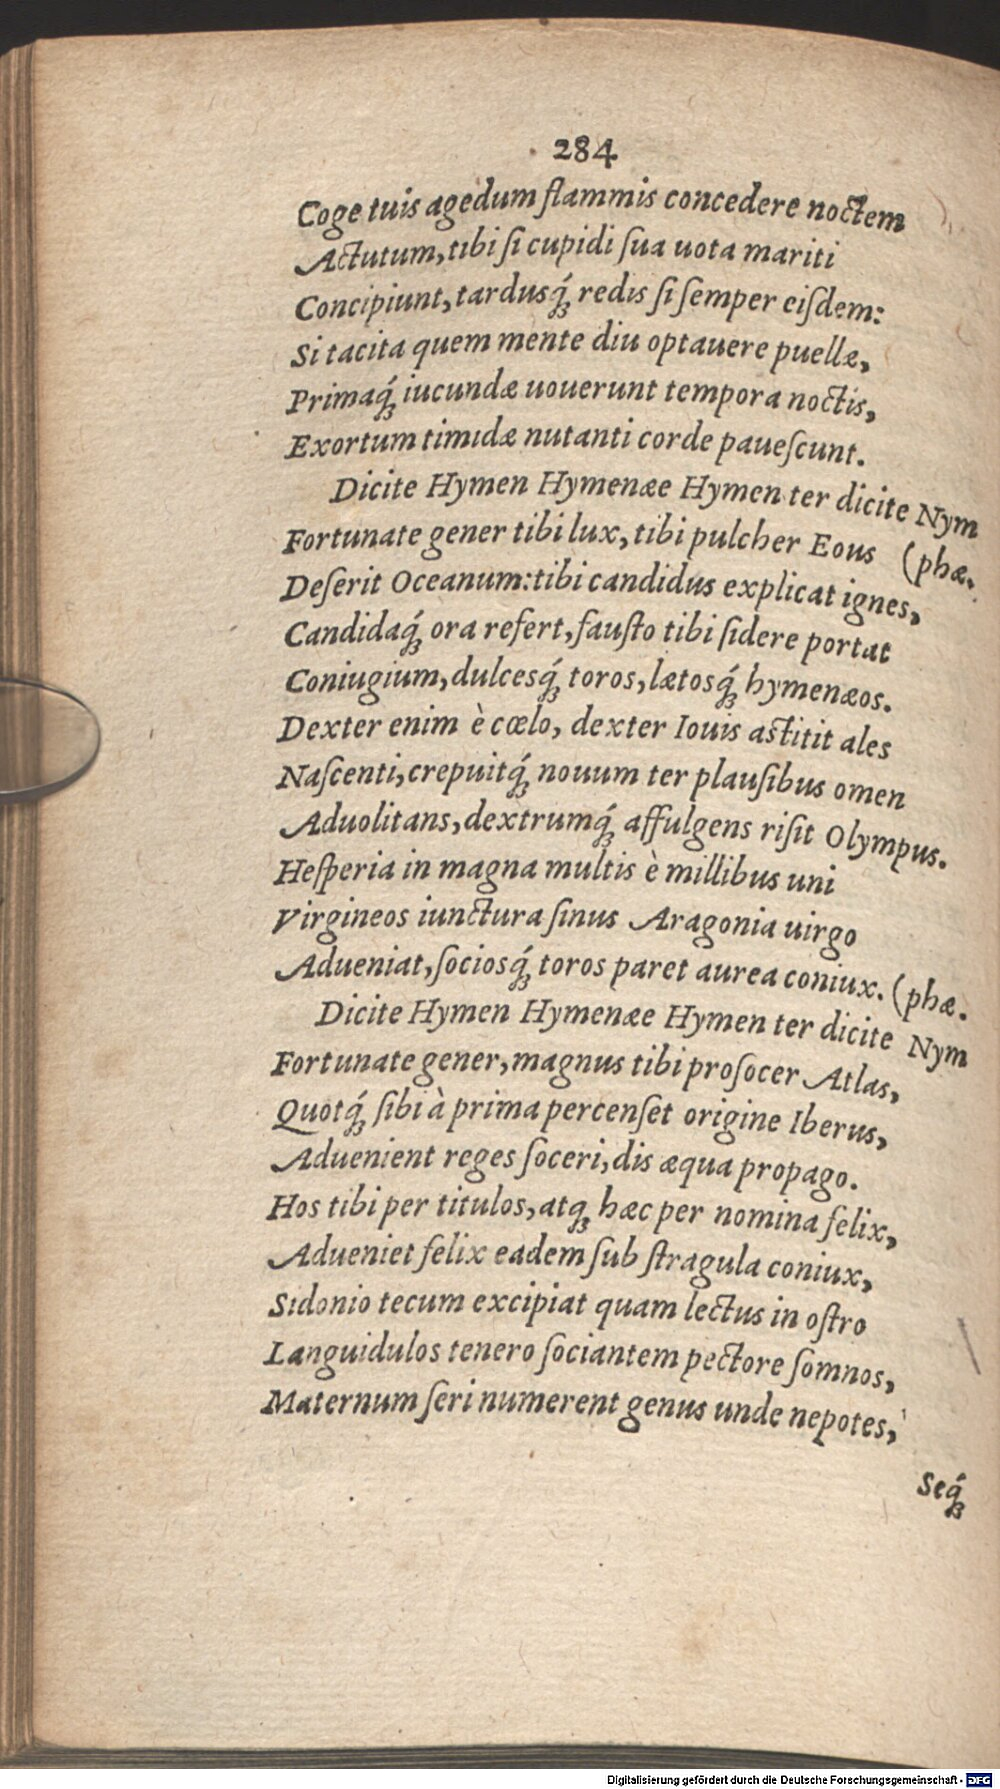 284
Coge tuis agedum flammis concedere noctem
Actutum, tibi ſi cupidi ſua uota mariti
Concipiunt, tardusq́ꝫ redis ſi ſemper eiſdem:
Si tacita quem mente diu optauere puellæ,
Primaq́ꝫ iucundæ uouerunt tempora noctis,
Exortum timidæ nutanti corde paueſcunt.
Dicite Hymen Hymenæe Hymen ter dicite Nym
Fortunate gener tibi lux, tibi pulcher Eous (phæ.
Deſerit Oceanum: tibi candidus explicat ignes,
Candidaq́ꝫ ora refert, fauſto tibi ſidere portat
Coniugium, dulcesq́ꝫ toros, lætosq́ꝫ hymenæos.
Dexter enim è cœlo, dexter Iouis astitit ales
Naſcenti, crepuitq́ꝫ nouum ter plauſibus omen
Aduolitans, dextrumq́ꝫ affulgens riſit Olympus.
Heſperia in magna multis è millibus uni
Virgineos iunctura ſinus Aragonia uirgo
Adueniat, ſociosq́ꝫ toros paret aurea coniux. (phæ.
Dicite Hymen Hymenæe Hymen ter dicite Nym
Fortunate gener, magnus tibi proſocer Atlas,
Quotq́ꝫ ſibi à prima percenſet origine Iberus,
Aduenient reges ſoceri, dis æqua propago.
Hos tibi per titulos, atqꝫ hæc per nomina felix,
Adueniet felix eadem ſub ſtragula coniux,
Sidonio tecum excipiat quam lectus in oſtro
Languidulos tenero ſociantem pectore ſomnos,
Maternum ſeri numerent genus unde nepotes,
Seq́ꝫ
Digitalisierung gefördert durch die Deutsche Forschungsgemeinschaft - DFG